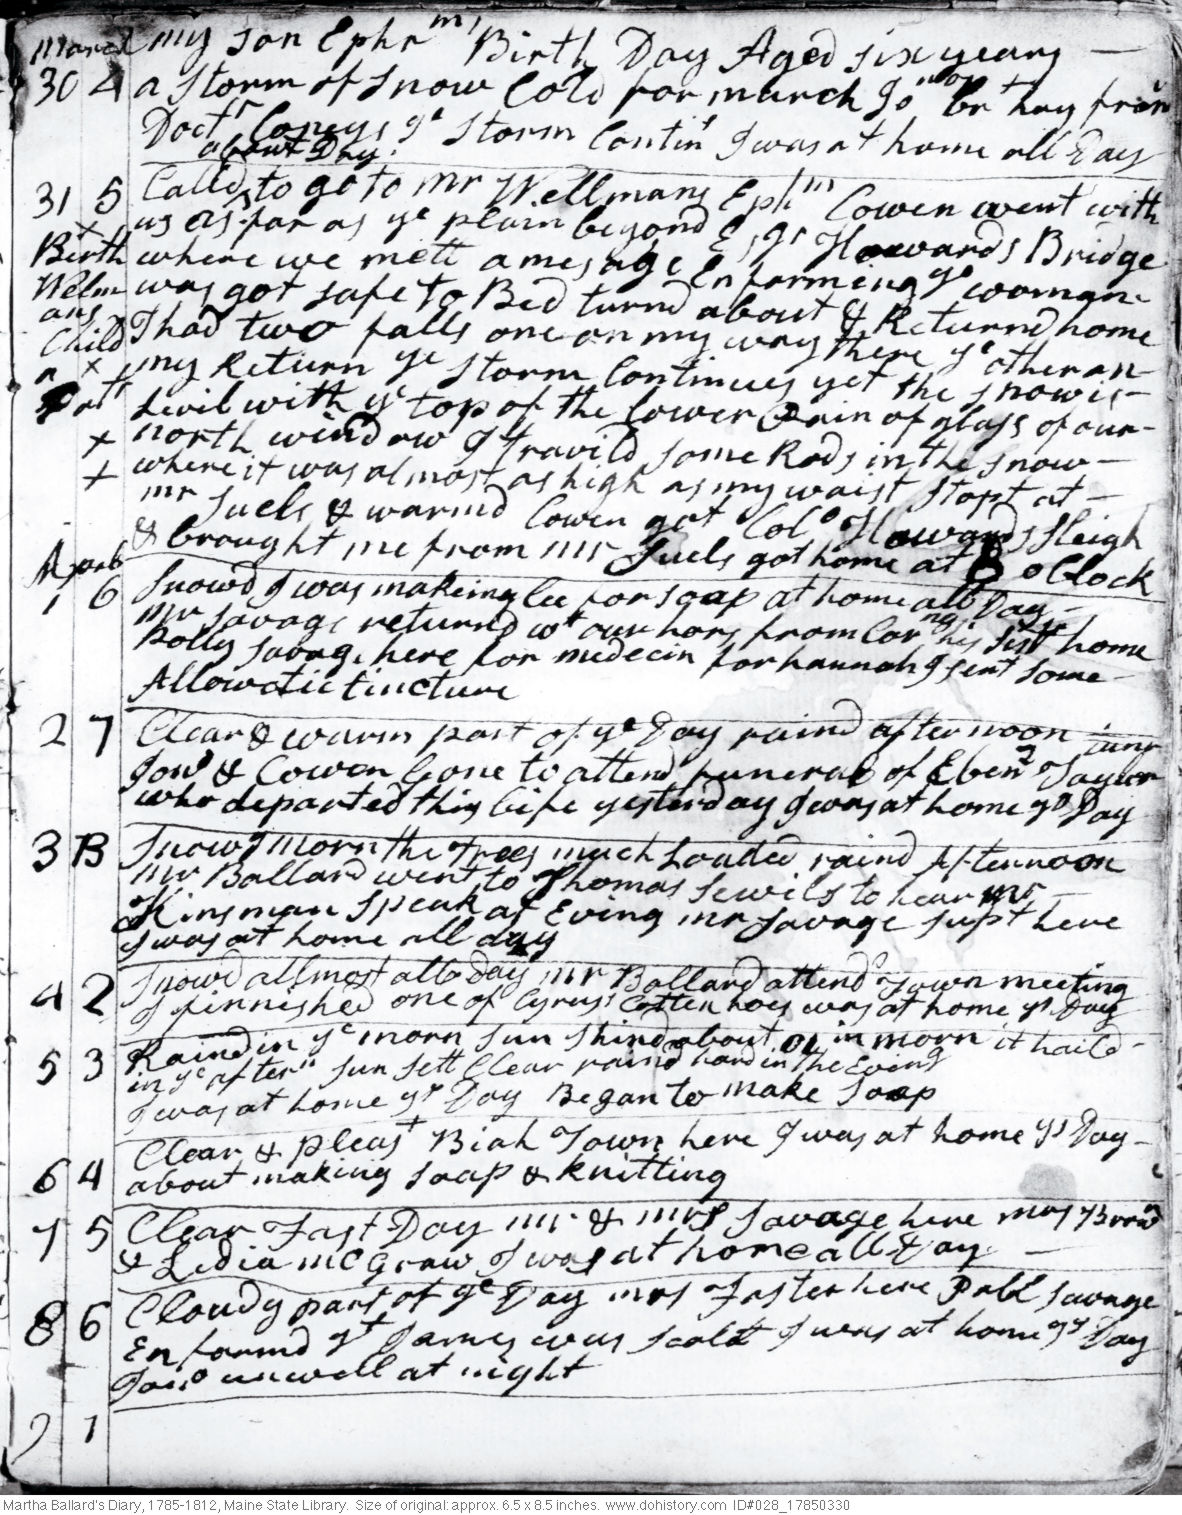 March my son Ephrm's Birth Day Aged six years
30 4 a storm of snow Cold for march Jon Brt hay from
Doctr Coneys ye storm Contin'd I was at home all Day
about Day
31 5 Calld to go to mr Wellmans Ephm Cowen went with
x us as far as ye plain beyond Esqr Howards Bridge
Birth where we mett a mesage Enforming ye woman
Welm was got safe to Bed turnd about & Returnd home
ans I had two falls one on my way there ye other on
Child my Return ye storm Continues yet the snow is
x Levil with ye top of the lower of glass of our
x north window I Travild some Rods in the snow
+ where it was almost as high as my waist Stopt at
mr Juels & warmd Cowen got Colo Howards sleigh
& brought me from mr Juels got home at 8 o Clock
April
1 6 Snowd I was makeing lie for soap at home all Day
mr Savage returnd wt our hors from home
Polly Savage here for medecin for hannah I sent some
Allowetic tincture
2 7 Clear & warm part of ye Day raind afternoon
Jon & Cowen Gone to attend funeral of Ebenr Taylor
who departed this life yesterday I was at home ys Day
3 B Snowd morn the Trees much Loaded raind Afternoon
mr Ballard went to Thomas Sewils to hear mr
Kinsman speak at Eving mr Savage supt here
I was at home all day
4 2 Snowd allmost all day mr Ballard attend Town meeting
I finnished one of Cyrus's Cotten hoes was at home ys Day
5 3 Raind in ye morn sun shind about 01 in morn it haild
in ye aftern sun sett Clear raind hard in the Evng
I was at home ys Day Began to make Soap
Clear & pleast Biah Town here I was at home ys Day
6 4 about making soap & knitting
7 5 Clear Fast Day mr & mrs Savage here mrs Brown
& Lidia mc Graw I was at home all Day
Cloudy part of ye Day mrs Foster here Poll Savage
8 6 Enformd yt James was scalt I was at home ys Day
Jon unwell at night
9 1
Martha Ballard's Diary, 1785-1812, Maine State Library. Size of original: approx. 6.5 x 8.5 inches. www.dohistory.com ID#028_17850330